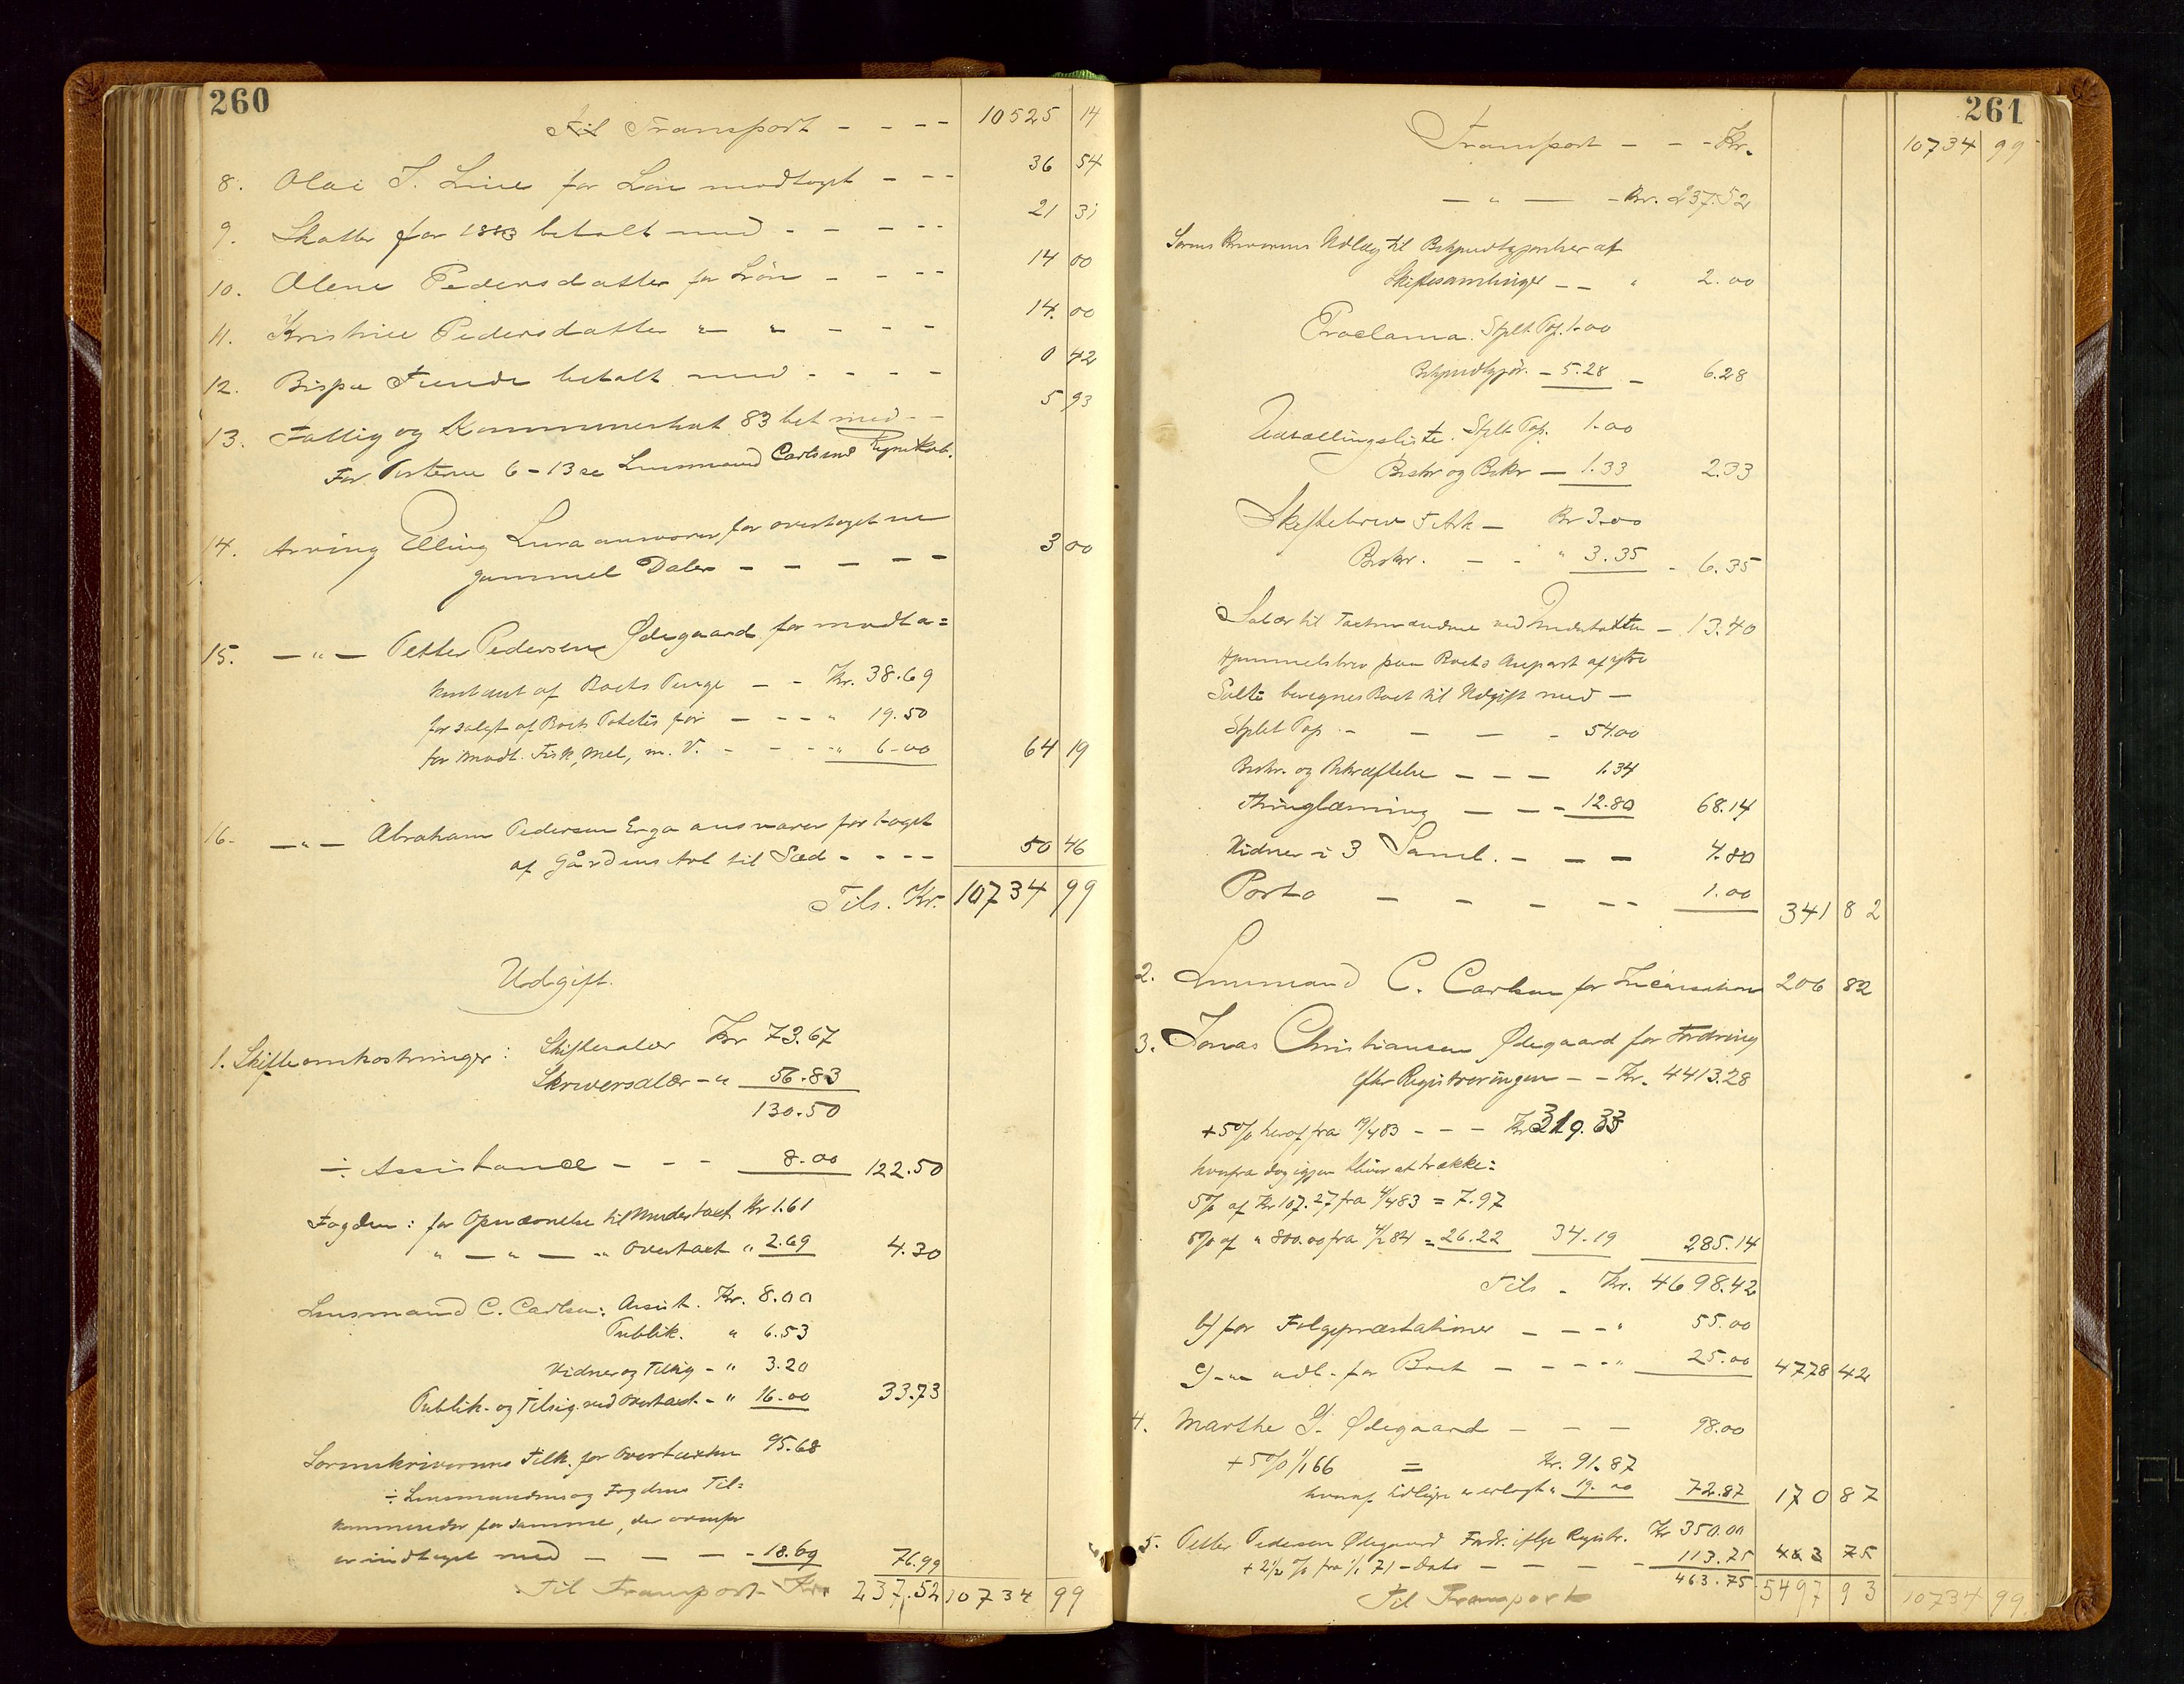 260
Til Transport - - - - 10525 14
8. Olai T. Line for Løn modtaget - - - 36 54
9. Skatter for 1883 betalt med - - - - - 21 31
10. Olene Pedersdatter for Løn - - - - 14 00
11. Kristine Pedersdatter " " - - - 14.00
12. Bispe Tiende betalt med - - - - 0 42
13. Fattig og Kommuneskat 83 bet med - - 5 93
For Posterne 6-13 se Lensmand Carlsens Regnskab.
14. Arving Elling Lura ansvarer for overtaget en
gammel Daler - - - - - 3 00
15. — " — Petter Pedersen Ødegaard for modta=
kontant af Boets Penge - - Kr. 38.69
for solgt af Boets Potetes for - - - " 19.50
for modt. Fisk, Mel, m. V. - - - " 6-00 64 19
16. — " — Abraham Pedersen Erga ansvarer for taget
af Gårdens Avl til Sæd - - - - 50 46
Tils. Kr. 10734 99
Udgift.
1. Skifteomkostninger: Skiftesalær Kr 73.67
Skriversalær - " 56.83
130.50
÷ Assistance - - - 8.00 122.50
Fogden: for Opnævnelse til Undertaxt Kr 1.61
" — " — " Overtaxt " 2.69 4.30
Lensmand C. Carlsen: Assist. Kr. 8.00
Publik. " 6.53
Vidner og Tilsig - " 3.20
Publik. og Tilsig. ved Overtaxt. - " 16-00 33.73
Sorenskriverens Tilk. for Overtaxten 95.68
÷ Lensmandens og Fogdens Til=
kommender for samme, der ovenfor
er indtaget med - - - - 18.69 76.99
Til Transport Kr. 237.52 10734 99
261
Transport - - - Kr. 10734 99
— " — - Kr. 237.52
Sorenskriverens Udlæg til Bekjendtgjørelser af
Skiftesamlinger - - " 2.00
Proclama. Stplt. Pap. 1.00
Bekjendtgjør. - 5.28 - 6.28
Udtællingsliste. Stplt Pap. 1.00
Beskr og Bekr - 1.33 2.33
Skiftebrev 5 Ark - Kr 3.00
Beskr. - - " 3.35 - 6.35
Salær til Taxtmændene ved Undertaxten - 13.40
Hjemmelsbrev paa Boets Anpart af ytre
Salte beregnes Boet til Udgift med -
Stplt Pap. - - - - 54.00
Beskr. og Bekræftelse - - - 1.34
Thinglæsning - - - 12.80 68.14
Vidner i 3 Saml. - - - 4.80
Porto - - - - - 1.00 341 82
2. Lensmand C. Carlsen for Incassation 206 82
3. Jonas Christiansen Ødegaard for Fordring
efter Registreringen - - Kr. 4413.28
+ 5% heraf fra 19/4 83 - - - Kr 319.33
hvorfra dog igjen bliver at trække:
5% af Kr 107.27 fra 4/4 83 = 7.97
5% af " 800.00 fra 4/2 84 = 26.22 34.19 285.14
Tils. Kr. 4698.42
b) for Følgepræstationer - - - " 55.00
c) - " - udl. for Boet - - - - " 25.00 4778 42
4. Marthe G. Ødegaard - - - 98.00
+ 5% 1/1 66 = Kr. 91.87
hvoraf tidligere er erlagt " 19.00 72.87 170 87
5. Petter Pedersen Ødegaard Fordr. ifølge Registr. Kr 350.00
+ 2 1/2 % fra 1/1 71 - Dato - - - - 113.75 463 75
463.75
Til Transport 5497 93 10734 99